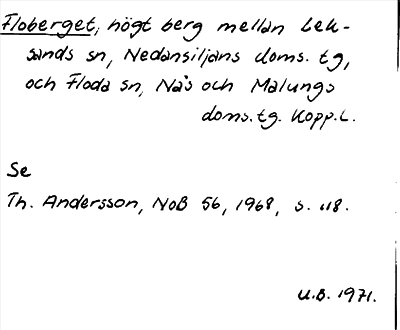 Floberget, högt berg mellan Lek-
sands sn, Nedansiljans doms. tg,
och Floda sn, Nås och Malungs
doms.tg. Kopp.L.
Se
Th. Andersson, NoB 56, 1968, s. 118.
U.B. 1971.